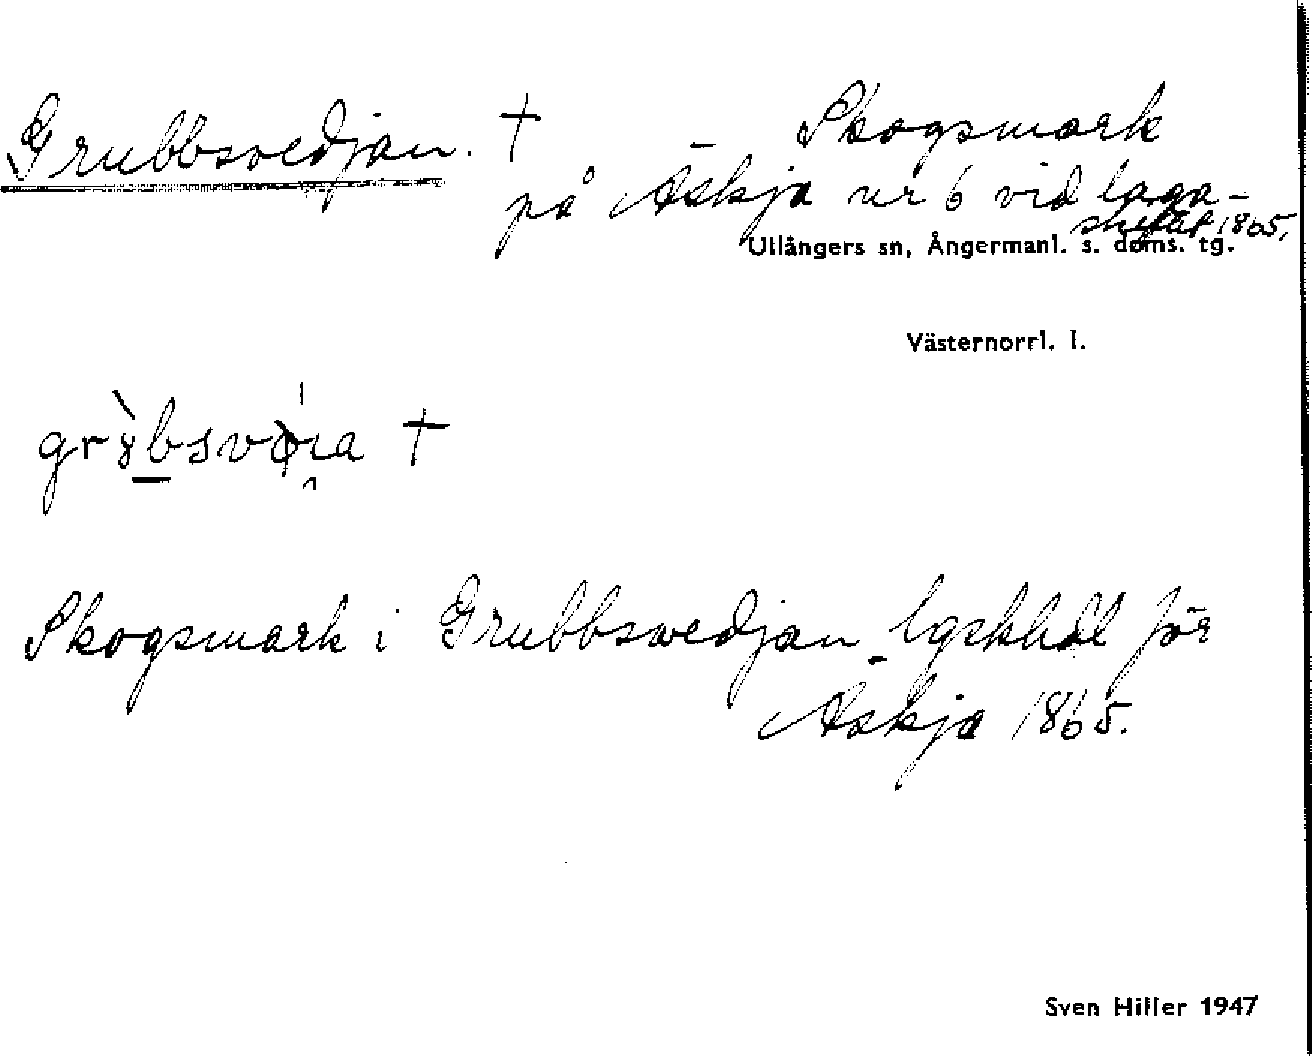 Grubbsvedjan. † Skogsmark
på Äskja nr 6 vid laga-
skiftet 1865.
Ullångers sn, Ångermanl. s. doms. tg.
Västernorrl. l.
†
Skogsmark i Grubbsvedjan lgskhdl för
Äskja 1865.
Sven Hiller 1947